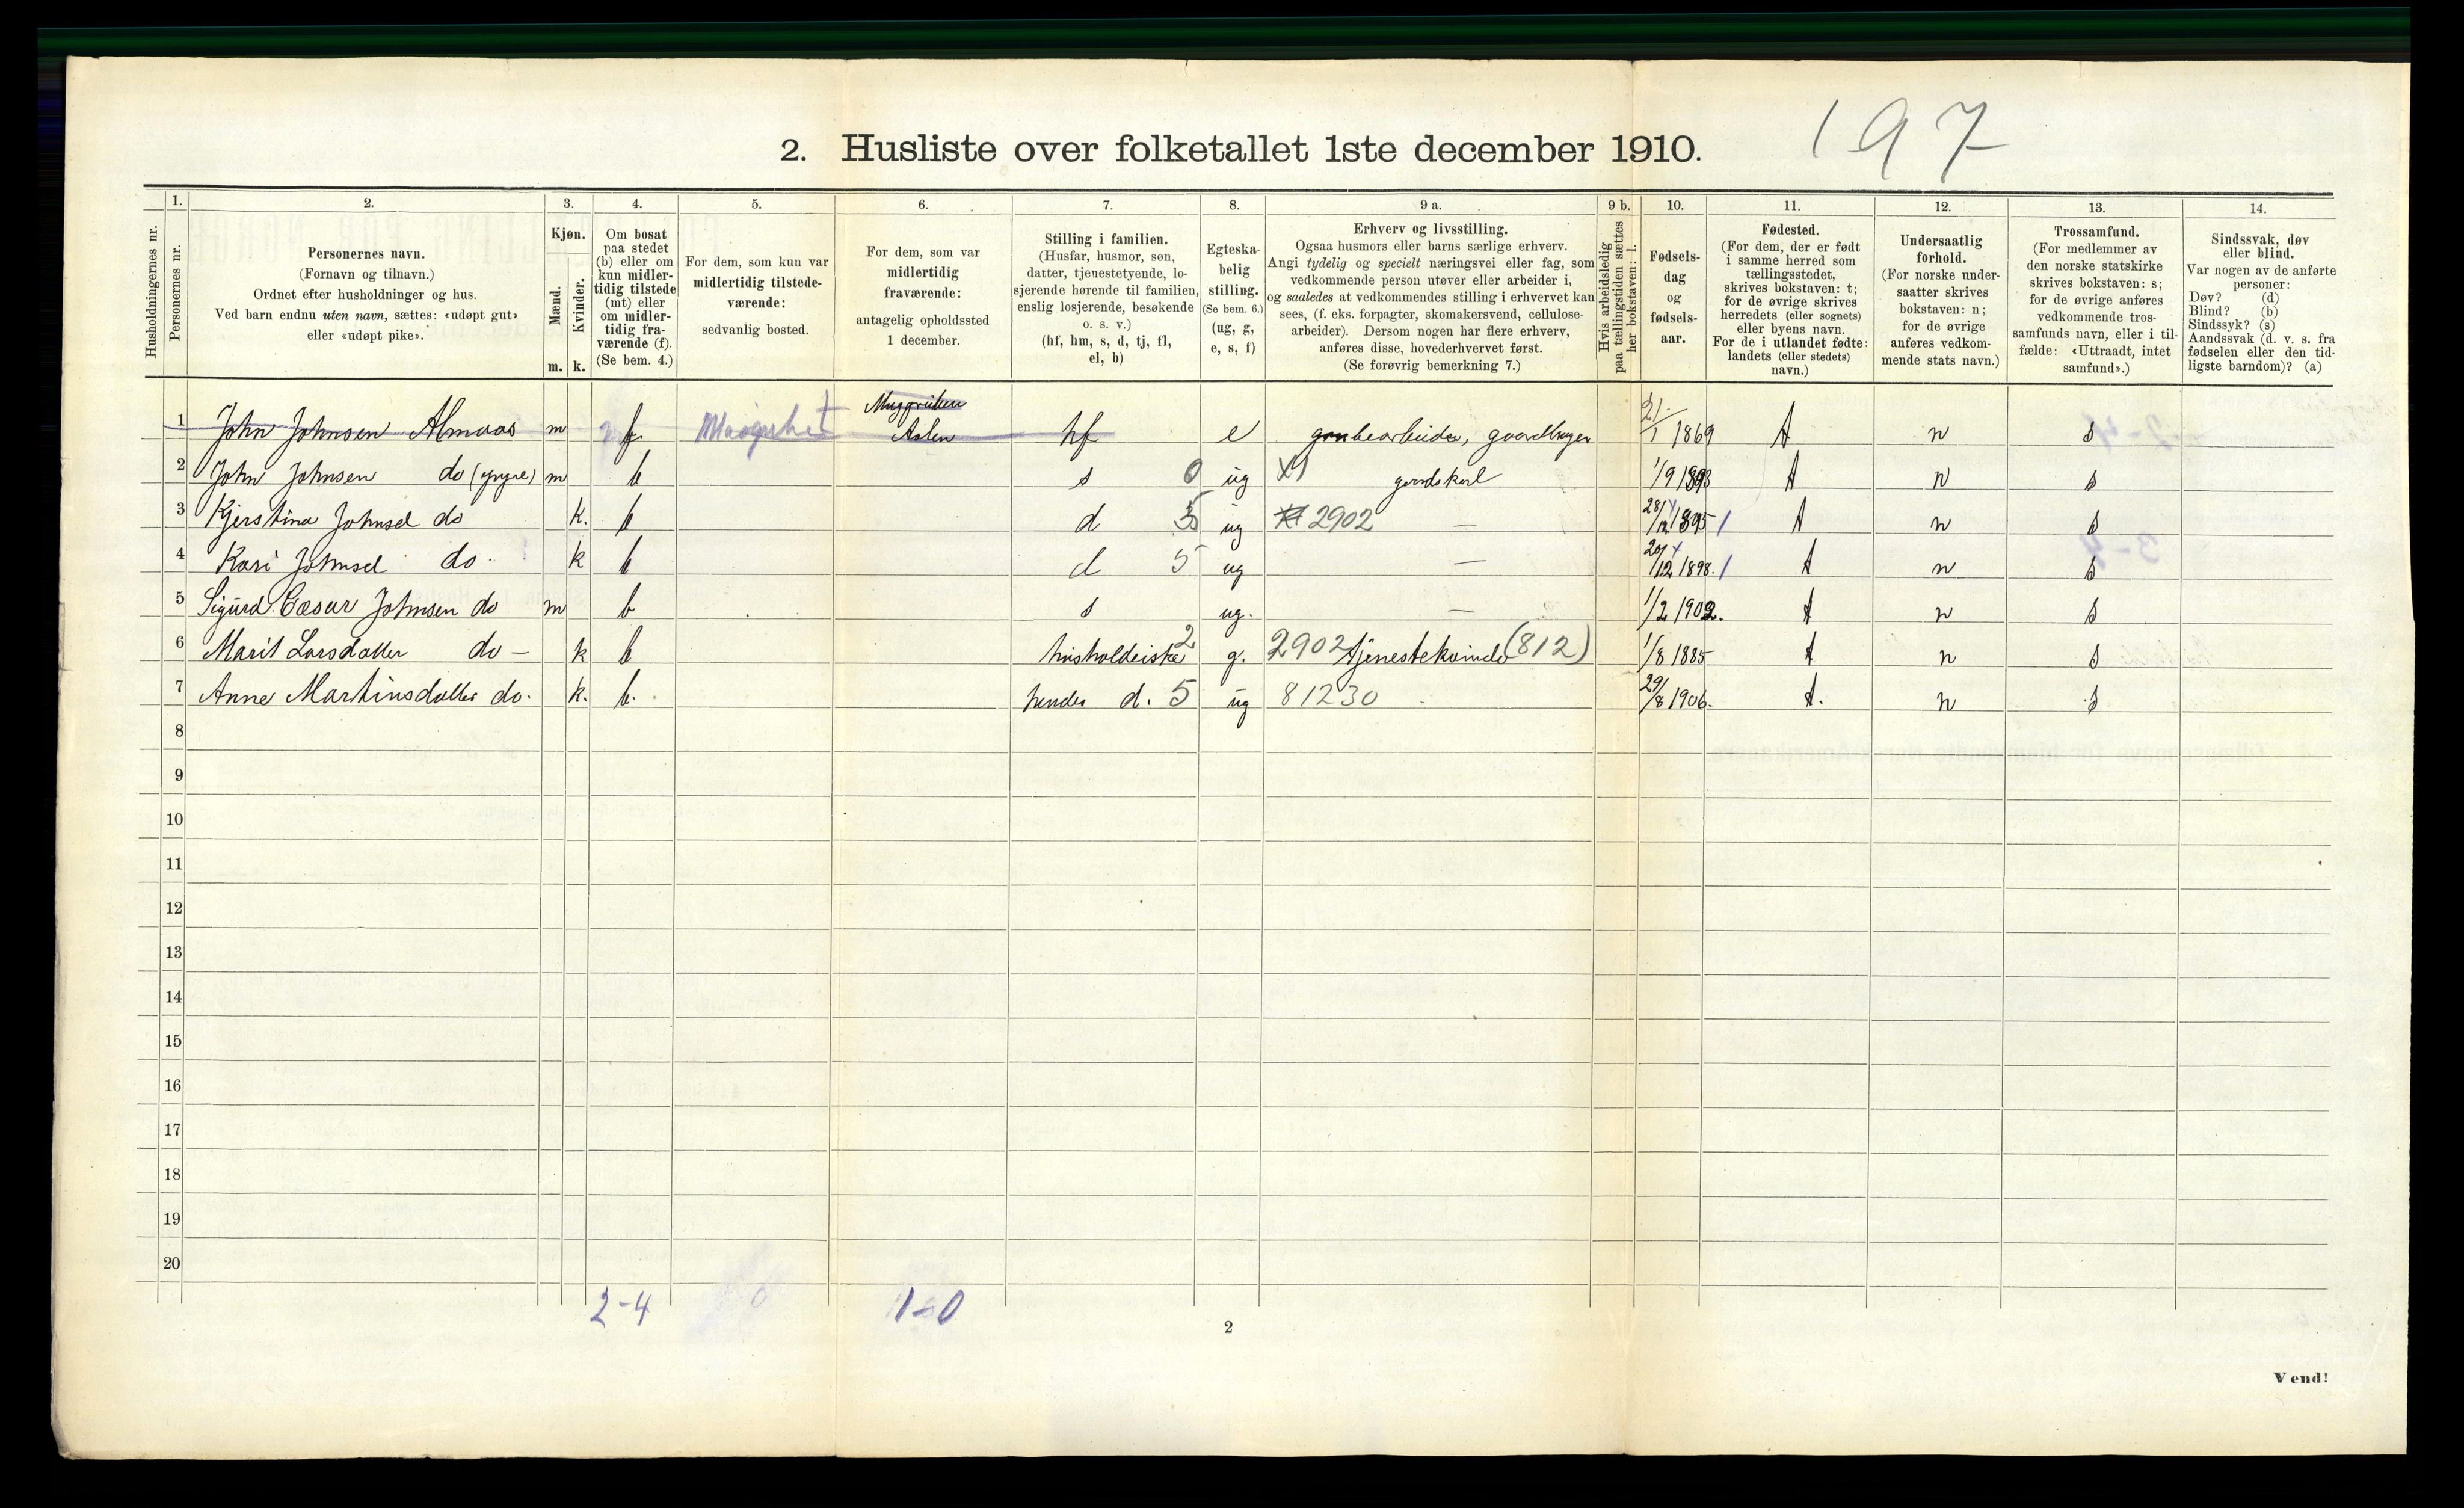 197
2. Husliste over folketallet 1ste december 1910.
Husholdningernes nr.
1. Personernes nr.
2. Personernes navn. (Fornavn og tilnavn.) Ordnet efter husholdninger og hus. Ved barn endnu uten navn, sættes: «udøpt gut» eller «udøpt pike».
3. Kjøn. Mænd. m. Kvinder. k.
4. Om bosat paa stedet (b) eller om kun midlertidig tilstede (mt) eller om midlertidig fraværende (f). (Se bem. 4.)
5. For dem, som kun var midlertidig tilstedeværende: sedvanlig bosted.
6. For dem, som var midlertidig fraværende: antagelig opholdssted 1 december.
7. Stilling i familien. (Husfar, husmor, søn, datter, tjenestetyende, losjerende hørende til familien, enslig losjerende, besøkende o. s. v.) (hf, hm, s, d, tj, fl, el, b)
8. Egteskabelig stilling. (Se bem. 6.) (ug, g, e, s, f)
9 a. Erhverv og livsstilling. Ogsaa husmors eller barns særlige erhverv. Angi tydelig og specielt næringsvei eller fag, som vedkommende person utøver eller arbeider i, og saaledes at vedkommendes stilling i erhvervet kan sees, (f. eks. forpagter, skomakersvend, cellulosearbeider). Dersom nogen har flere erhverv, anføres disse, hovederhvervet først. (Se forøvrig bemerkning 7.)
9 b. Hvis arbeidsledig paa tællingstiden sættes her bokstaven: l.
10. Fødselsdag og fødselsaar.
11. Fødested. (For dem, der er født i samme herred som tællingsstedet, skrives bokstaven: t; for de øvrige skrives herredets (eller sognets) eller byens navn. For de i utlandet fødte: landets (eller stedets) navn.)
12. Undersaatlig forhold. (For norske undersaatter skrives bokstaven: n; for de øvrige anføres vedkommende stats navn.)
13. Trossamfund. (For medlemmer av den norske statskirke skrives bokstaven: s; for de øvrige anføres vedkommende trossamfunds navn, eller i tilfælde: «Uttraadt, intet samfund».)
14. Sindssvak, døv eller blind. Var nogen av de anførte personer: Døv? (d) Blind? (b) Sindssyk? (s) Aandssvak (d. v. s. fra fødselen eller den tidligste barndom)? (a)
1 John Johnsen Almaas m f Aalen hf e grubearbeider, gaardbruger 21/1 1869 t n s
2 John Johnsen do (yngre) m b s 0 ug X1 gaardskarl 1/9 1893 t n s
3 Kjerstina Johnsd do k. b d 5 ug 2902 — 28/12 1895 t n s
4 Kari Johnsd do. k b d 5 ug — 20/12 1898. t n s
5 Sigurd Cæsar Johnsen do m b s ug. — 1/2 1902. t n s
6 Marit Larsdatter do — k b husholderske 2 g. 2902 tjenestekvinde (812) 1/8 1885 t n s
7 Anne Martinsdatter do. k. b. hendes d. 5 ug 81230 29/8 1906. t. n s
8
9
10
11
12
13
14
15
16
17
18
19
20
2-4 1-0
2
Vend!